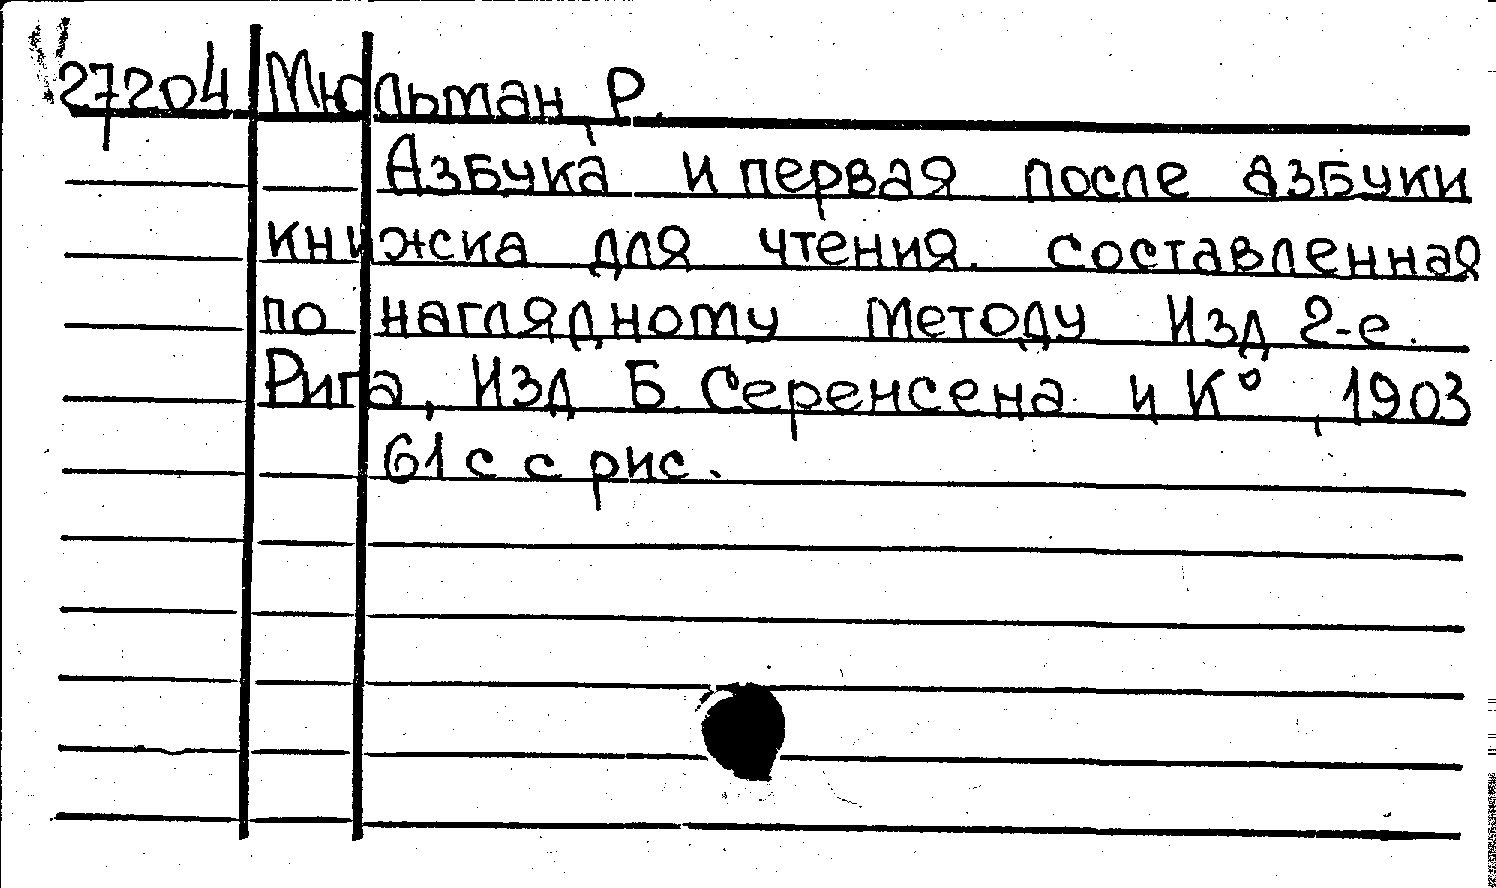 27204 Мюльман, Р.
Азбука и первая после азбуки
книжска для чтения. составленная
по наглядному методу Изд 2-е.
Рига, Изд Б. Серенсена и К°, 1903
61 с с рис.